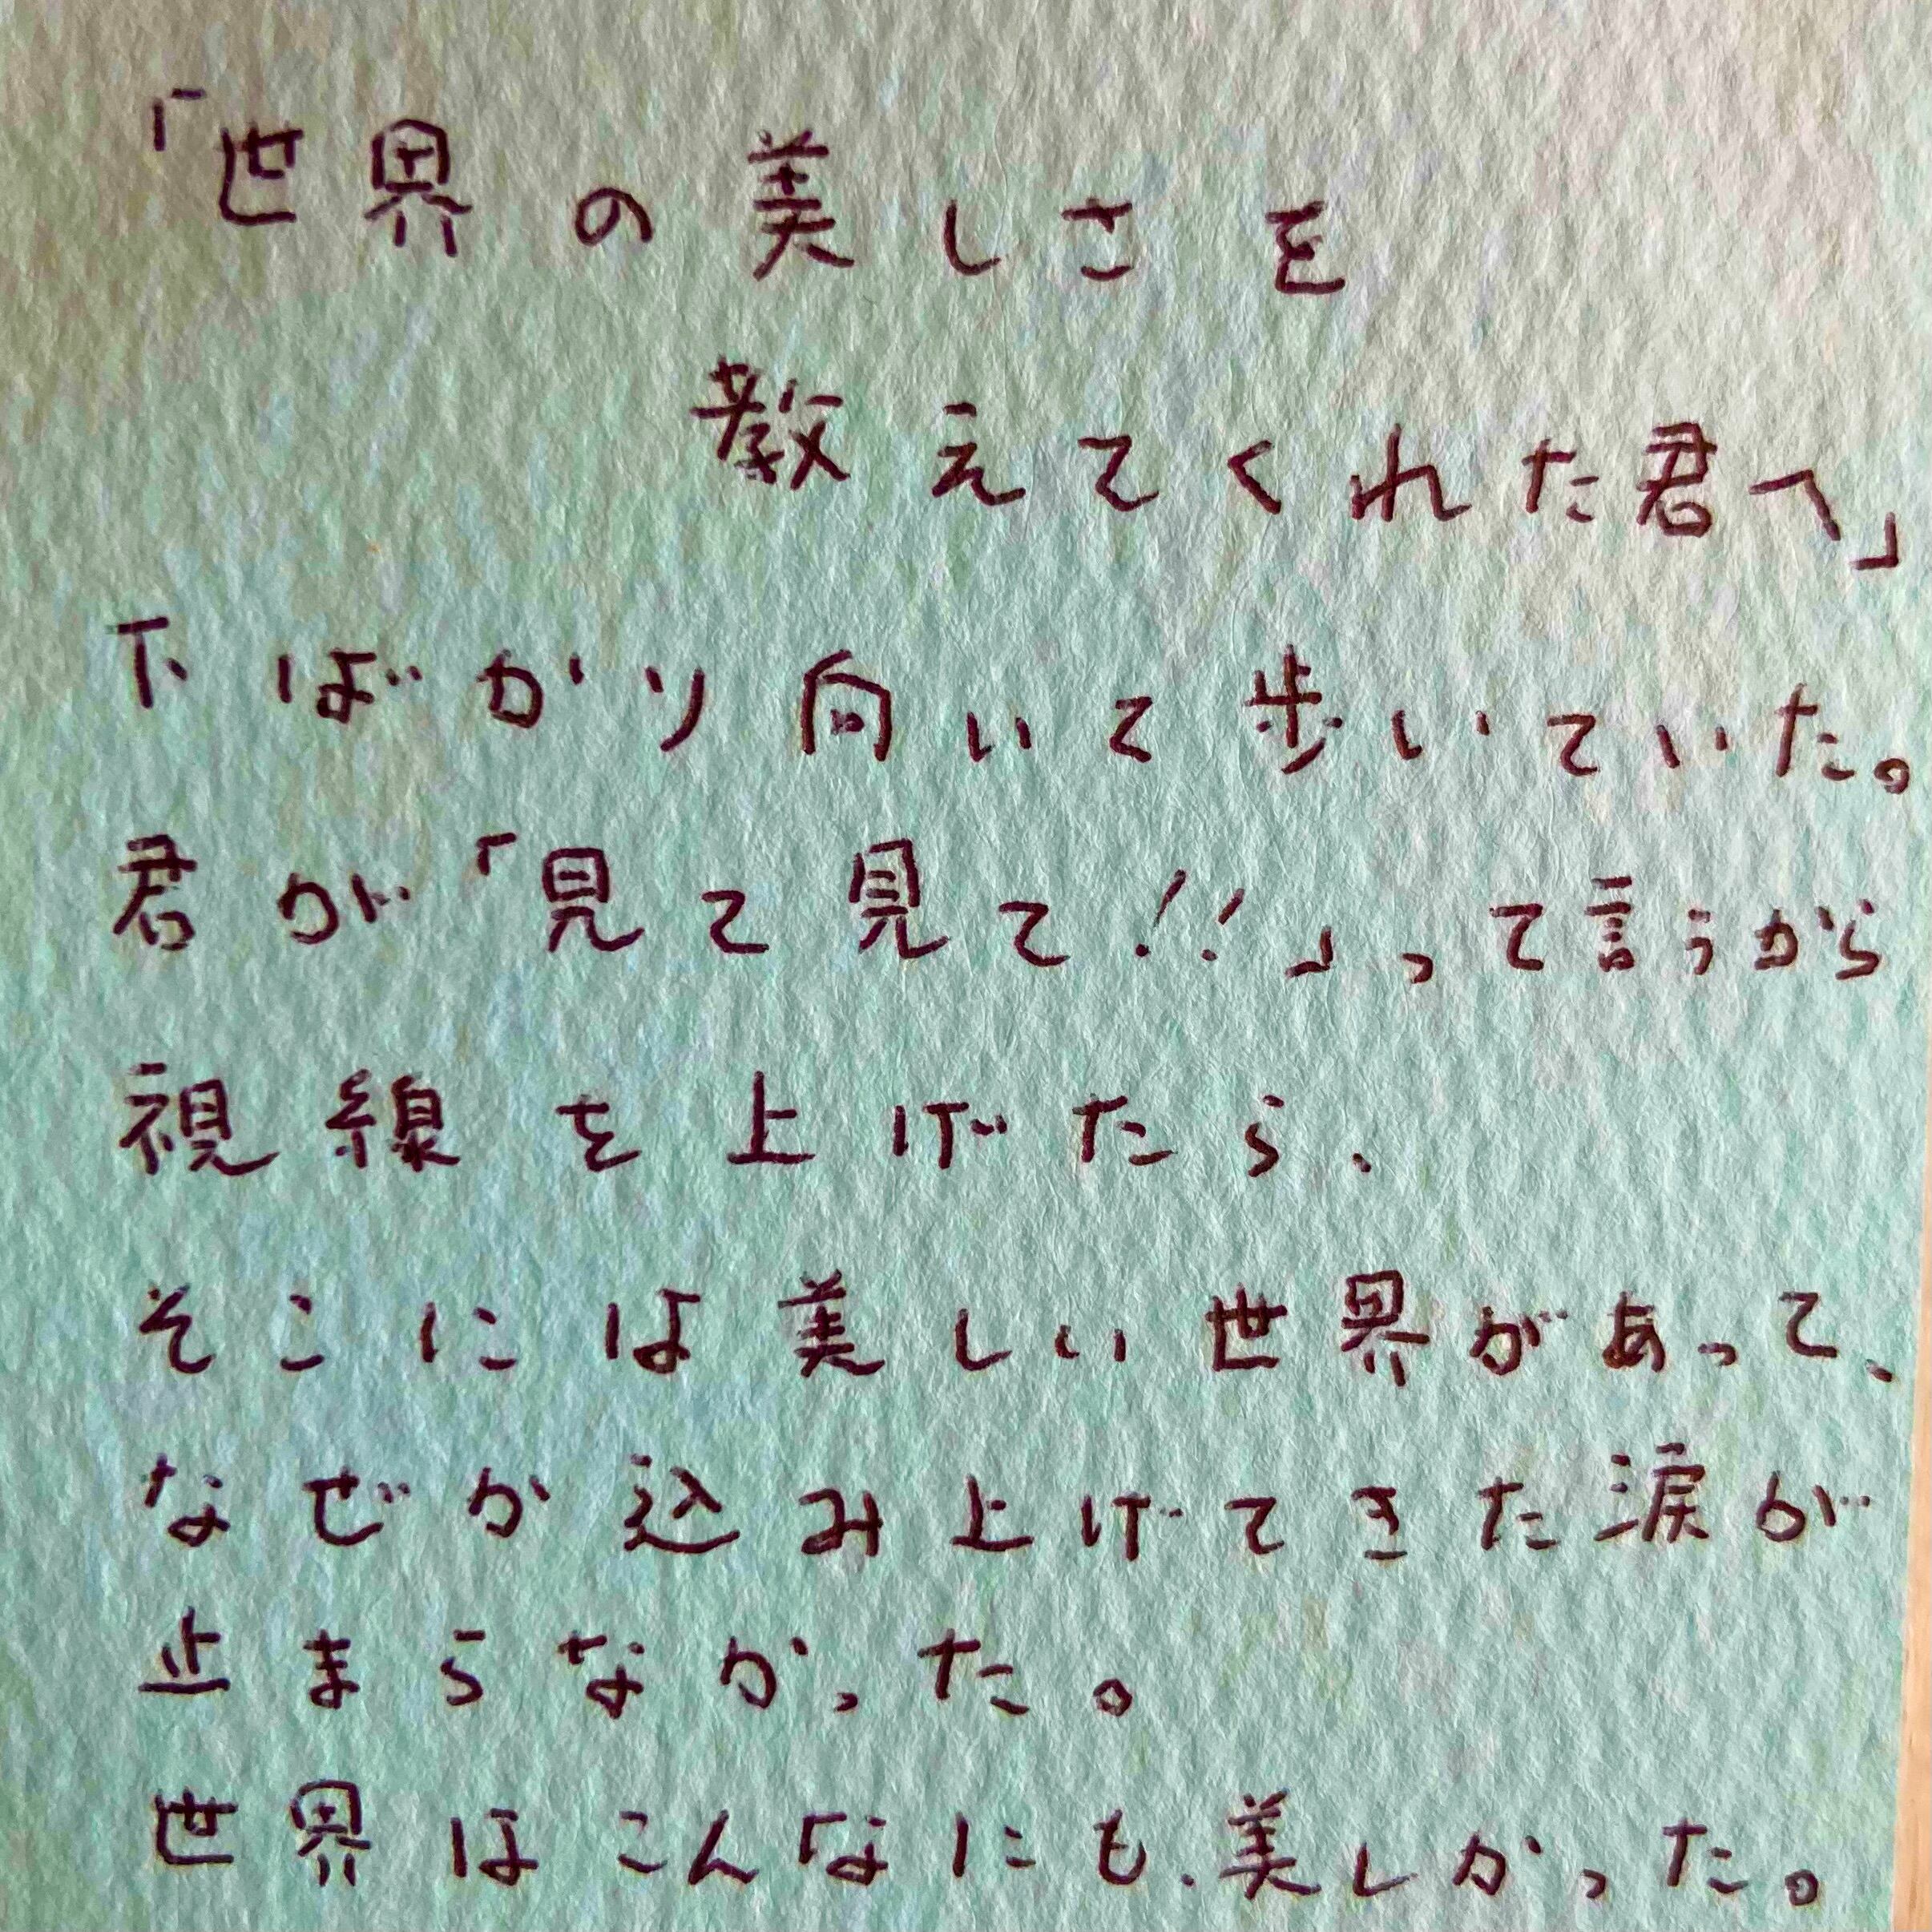 「世界の美しさを
教えてくれた君へ」
下ばかり向いて歩いていた。
君が「見て見て!!」って言うから
視線を上げたら、
そこには美しい世界があって、
なぜか込み上げてきた涙が
止まらなかった。
世界はこんなにも、美しかった。